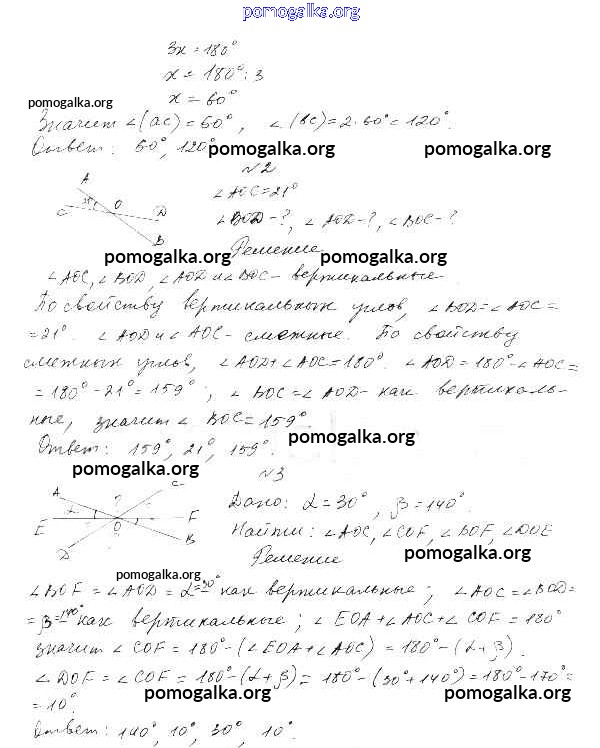 pomogalka.org
3x = 180°
x = 180° : 3
x = 60°
pomogalka.org
Значит ∠(ac) = 60°, ∠(bc) = 2·60° = 120°.
Ответ: 60°, 120°
pomogalka.org pomogalka.org
№2
A
C O D
B
∠AOC = 21°
∠BOD - ?, ∠AOD - ?, ∠BOC - ?
pomogalka.org pomogalka.org
Решение
∠AOC, ∠BOD, ∠AOD и ∠BOC - вертикальные.
По свойству вертикальных углов, ∠BOD = ∠AOC =
= 21°. ∠AOD и ∠AOC - смежные. По свойству
смежных углов, ∠AOD + ∠AOC = 180°. ∠AOD = 180° - ∠AOC =
= 180° - 21° = 159°; ∠BOC = ∠AOD - как вертикаль-
ные, значит ∠BOC = 159°
pomogalka.org
Ответ: 159°, 21°, 159°.
pomogalka.org
№3
A C
? α
E O F
D B
Дано: α = 30°, β = 140°.
Найти: ∠AOC, ∠COF, ∠BOF, ∠DOE
pomogalka.org
Решение
pomogalka.org
∠BOF = ∠AOD = α = 30° как вертикальные; ∠AOC = ∠BOD =
= β = 140° как вертикальные; ∠EOA + ∠AOC + ∠COF = 180°
значит ∠COF = 180° - (∠EOA + ∠AOC) = 180° - (α + β).
∠DOF = ∠COF = 180° - (α + β) = 180° - (30° + 140°) = 180° - 170° =
= 10°.
pomogalka.org pomogalka.org
Ответ: 140°, 10°, 30°, 10°.